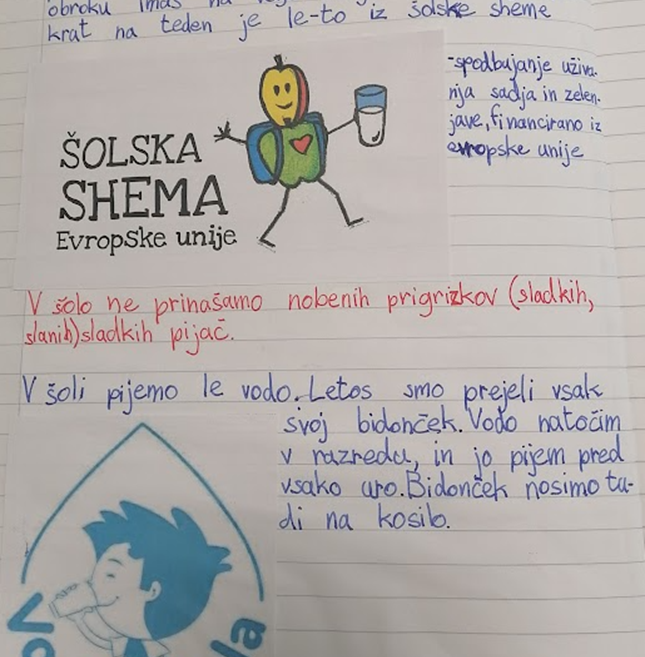 obroku imaš na
krat na teden je le-to iz šolske sheme
-spodbujanje uživa-
nja sadja in zelen-
jave, financirano iz
evropske unije
ŠOLSKA
SHEMA
Evropske unije
V šolo ne prinašamo nobenih prigrizkov (sladkih,
slanih) sladkih pijač.
V šoli pijemo le vodo. Letos smo prejeli vsak
svoj bidonček. Vodo natočim
v razredu, in jo pijem pred
vsako uro. Bidonček nosimo tu-
di na kosilo.